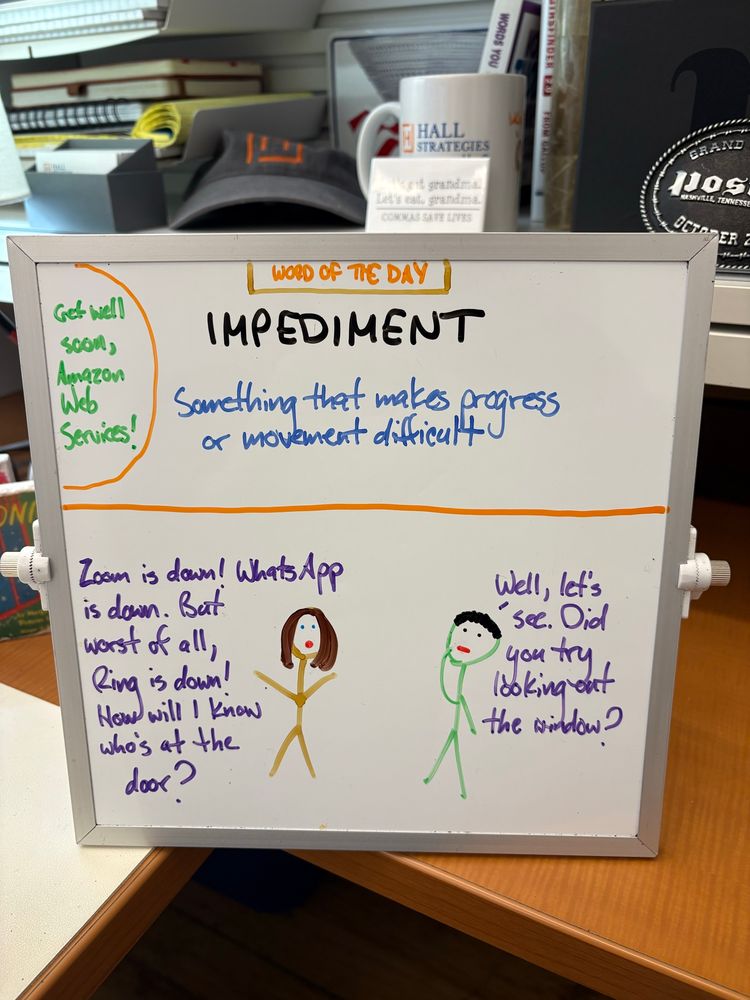 WORDS YOU
HALL
STRATEGIES
Let's eat grandma!
Let's eat, grandma.
COMMAS SAVE LIVES
GRAND
Pos
NASHVILLE, TENNESSEE
OCTOBER 2
WORD OF THE DAY
IMPEDIMENT
Something that makes progress
or movement difficult
Get well
soon,
Amazon
Web
Services!
Zoom is down! WhatsApp
is down. But
worst of all,
Ring is down!
How will I know
who's at the
door?
Well, let's
see. Did
you try
looking out
the window?